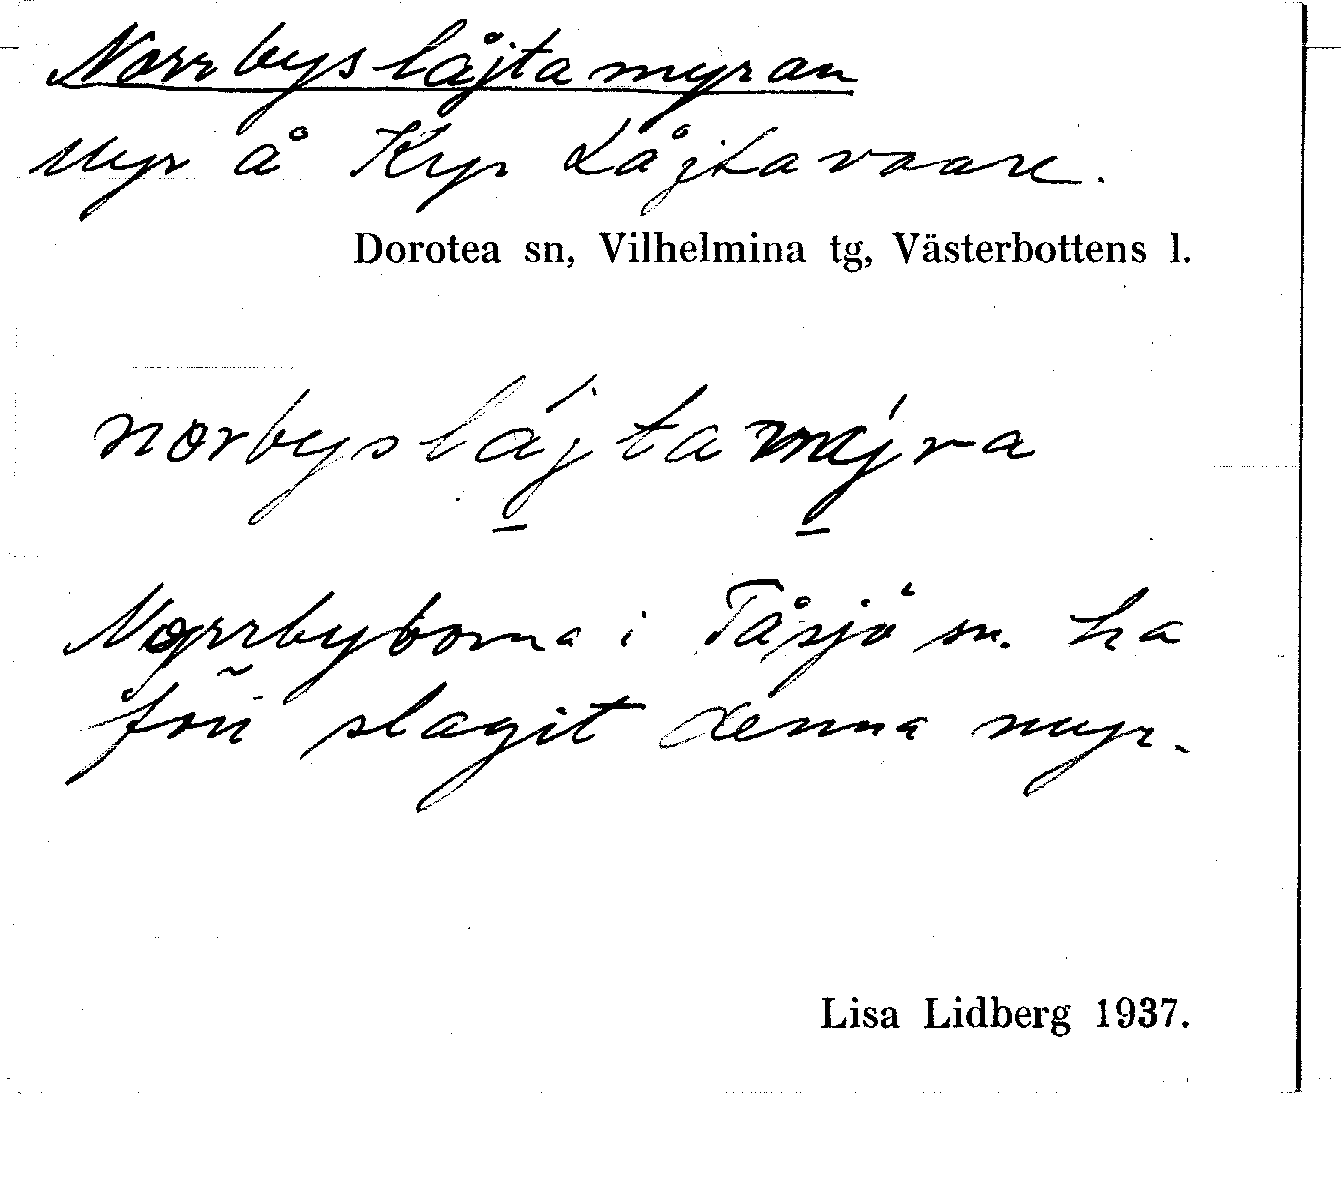 Norrbyslåjtamyran
Myr å Kyr Låjtavaare.
Dorotea sn, Vilhelmina tg, Västerbottens l.
norbyslájtamýra
Norrbyborna i Tåsjö sn. ha
förr slagit denna myr.
Lisa Lidberg 1937.